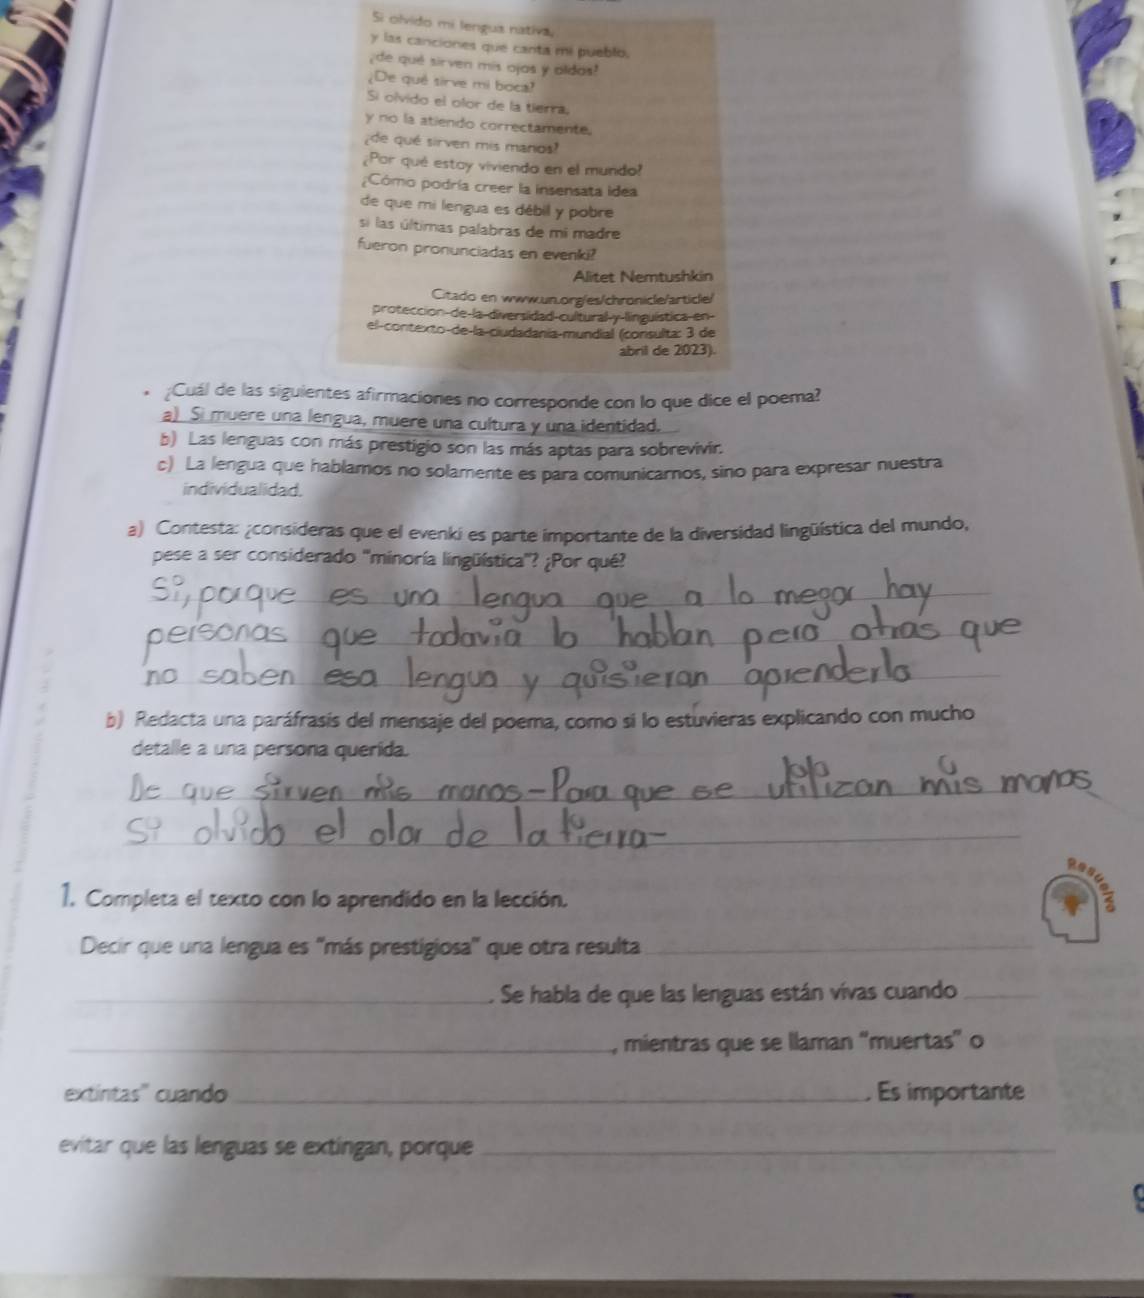 Si olvido mi lengua nativa,
y las canciones que canta mi pueblo,
¿de qué sirven mis ojos y oídos?
¿De qué sirve mi boca?
Si olvido el olor de la tierra,
y no la atiendo correctamente,
¿de qué sirven mis manos?
¿Por qué estoy viviendo en el mundo?
¿Cómo podría creer la insensata idea
de que mi lengua es débil y pobre
si las últimas palabras de mi madre
fueron pronunciadas en evenki?
Alitet Nemtushkin
Citado en www.un.org/es/chronicle/article/
proteccion-de-la-diversidad-cultural-y-linguistica-en-
el-contexto-de-la-ciudadania-mundial (consulta: 3 de
abril de 2023).
• ¿Cuál de las siguientes afirmaciones no corresponde con lo que dice el poema?
a) Si muere una lengua, muere una cultura y una identidad.
b) Las lenguas con más prestigio son las más aptas para sobrevivir.
c) La lengua que hablamos no solamente es para comunicarnos, sino para expresar nuestra
individualidad.
a) Contesta: ¿consideras que el evenki es parte importante de la diversidad lingüística del mundo,
pese a ser considerado "minoría lingüística"? ¿Por qué?
Si, porque es una lengua que a lo megor hay
personas que todavia lo hablan pero otras que
no saben esa lengua y quisieran aprenderla
b) Redacta una paráfrasis del mensaje del poema, como si lo estuvieras explicando con mucho
detalle a una persona querida.
De que sirven mis manos - Para que se utilizan mis manos
Si olvido el olor de la tierra-
Resuelvo
1. Completa el texto con lo aprendido en la lección.
Decir que una lengua es "más prestigiosa" que otra resulta
. Se habla de que las lenguas están vivas cuando
, mientras que se llaman "muertas" o
extintas" cuando . Es importante
evitar que las lenguas se extingan, porque